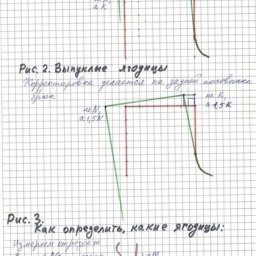 а К
Рис. 2. Выпуклые ягодицы
Корректировка делается на задней половинке
брюк.
не N,
а 1,5N
не К,
а 1,5 К
Рис. 3.
Как определить, какие ягодицы:
Измеряем отрезок